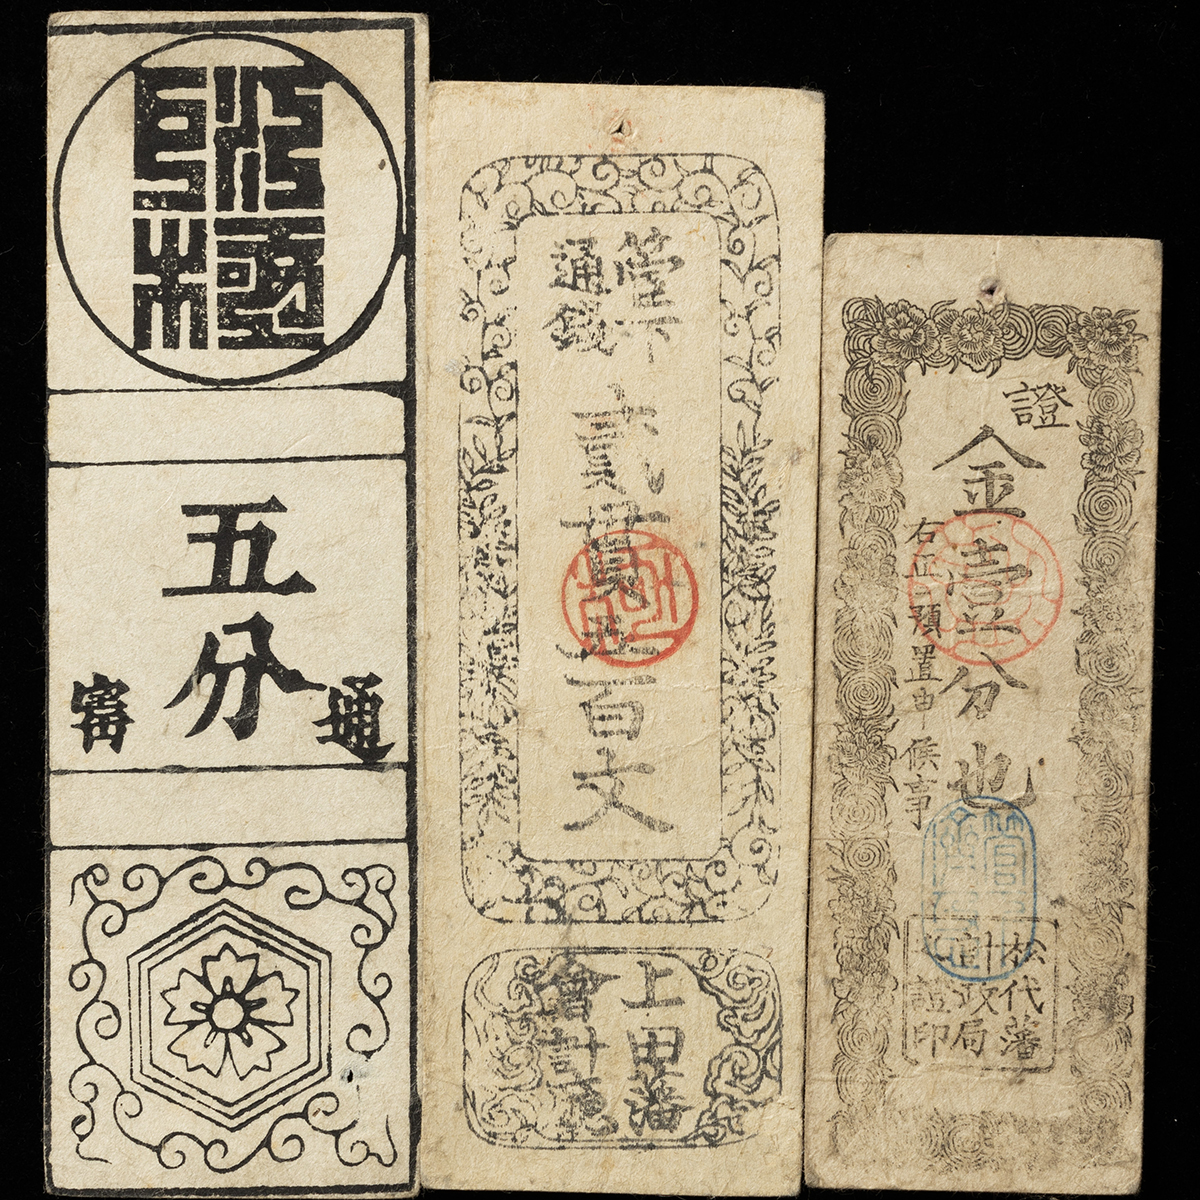 五分
通
寓
管下
通錢
貳貫五百文
上田藩
會計局
證
金壹分也
右正ニ預置申候事
松代藩
計政局
之證印